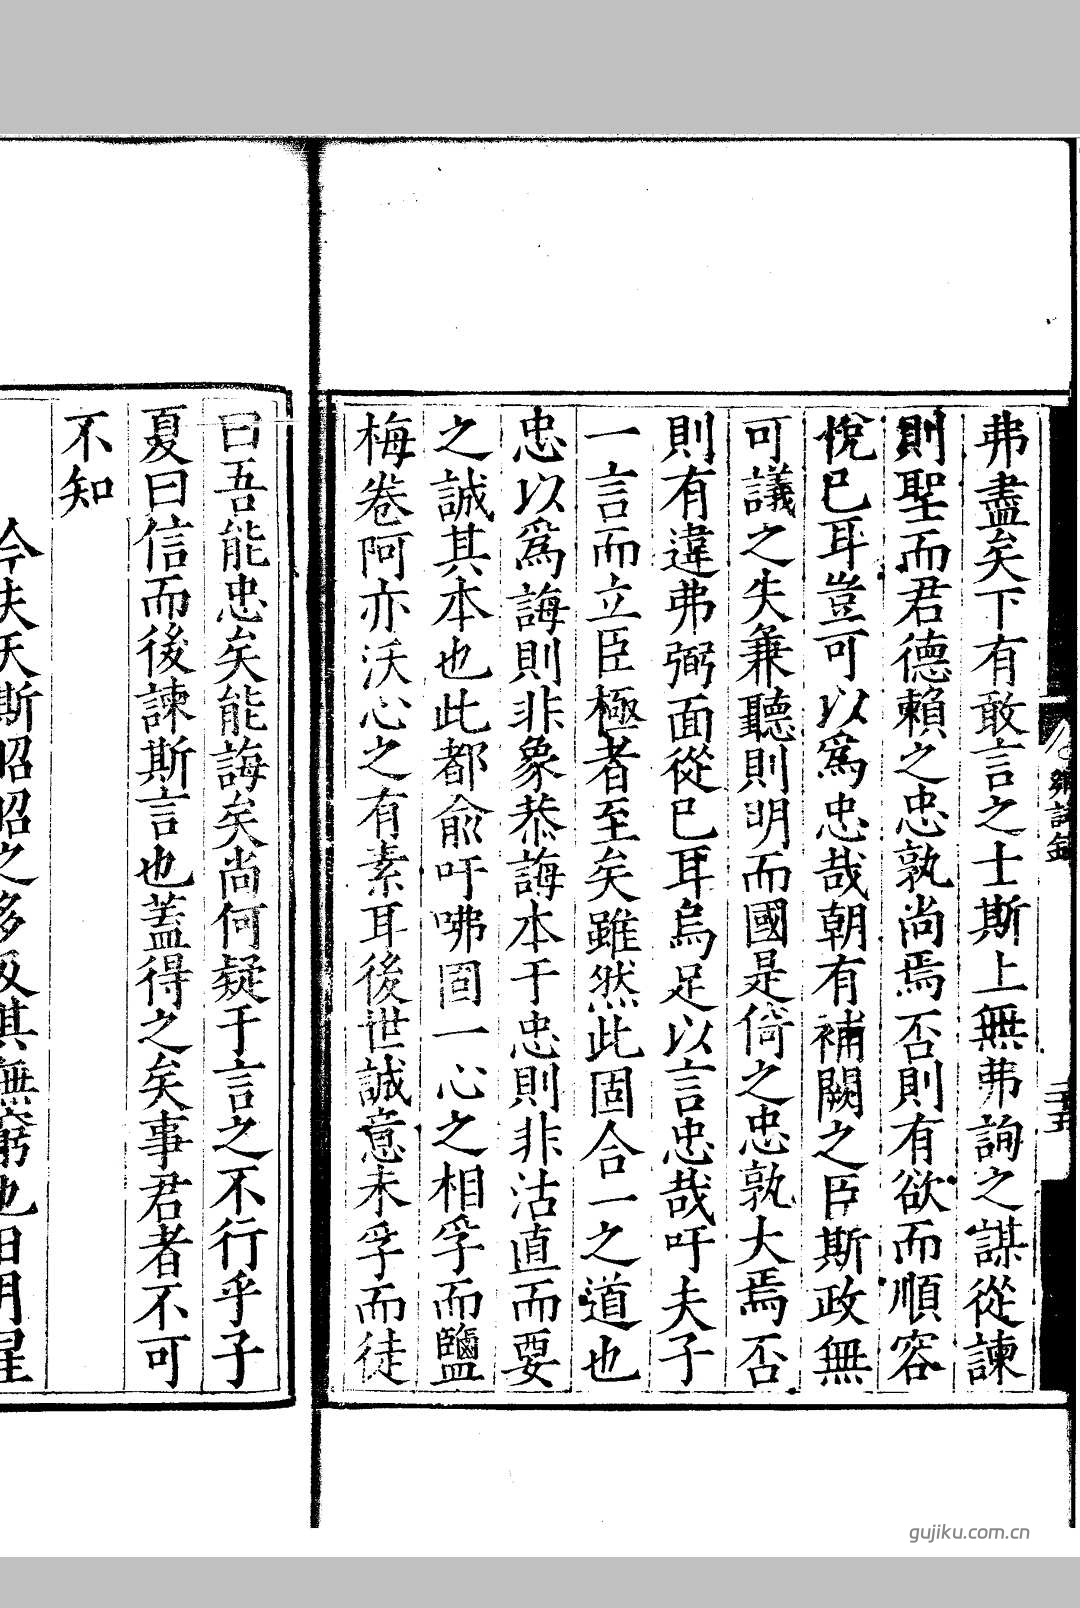 鄉試錄
二十五
弗盡矣下有敢言之士斯上無弗詢之謀從諫
則聖而君德賴之忠孰尚焉否則有欲而順容
悅已耳豈可以爲忠哉朝有補闕之臣斯政無
可議之失兼聽則明而國是倚之忠孰大焉否
則有違弗弼面從已耳烏足以言忠哉吁夫子
一言而立臣極者至矣雖然此固合一之道也
忠以爲誨則非象恭誨本于忠則非沽直而要
之誠其本也此都俞吁咈固一心之相孚而鹽
梅卷阿亦沃心之有素耳後世誠意未孚而徒
曰吾能忠矣能誨矣尚何疑于言之不行乎子
夏曰信而後諫斯言也蓋得之矣事君者不可
不知
今夫天斯昭昭之多及其無窮也日月星
gujiku.com.cn